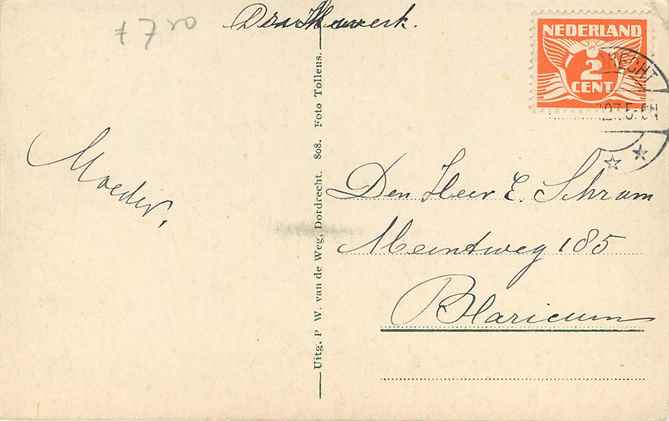 Drukwerk.
+ 7.50
NEDERLAND
2
CENT
RECHT
Moeder.
Den Heer E. Schram
Meentweg 185
Blaricum
Uitg. P. W. van de Weg, Dordrecht. 808. Foto Tollens.